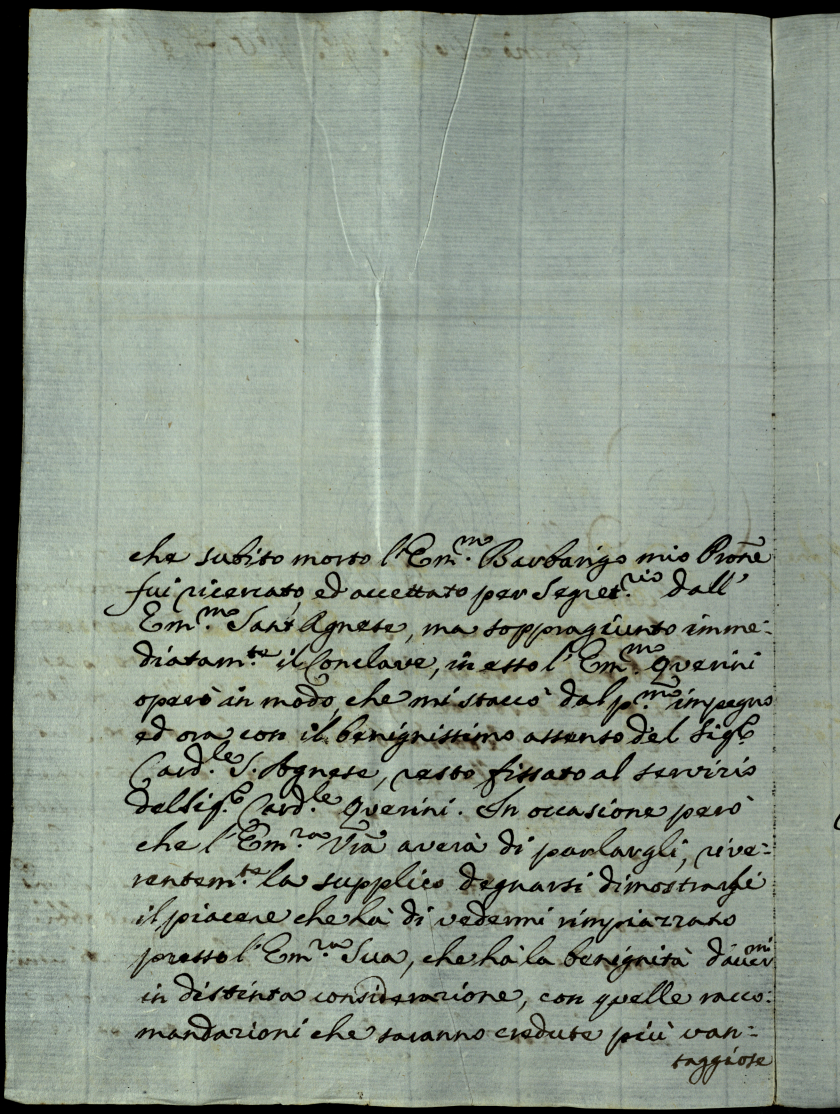 che subito morto l'Em.mo Barbarigo mio Prone
fui ricercato, ed accettato per Segret.rio dall'
Em.mo Sant'Agnese, ma soppragiunto imme:
diatam.te il Conclave, in esso l'Em.mo Querini
operò in modo, che mi staccò dal p.mo impegno
ed ora con il benignissimo assenso del Sig.r
Card.le S. Agnese, resto fissato al servizio
del Sig.r Card.le Querini. In occasione però
che l'Em.za Vra averà di parlargli, rive:
rentem.te la supplico degnarsi dimostrargli
il piacere che hà di vedermi rimpiazzato
presso l'Em.za Sua, che hà la benignità d'avermi
in distinta considerazione, con quelle racco:
mandazioni che saranno credute più van:
taggiose